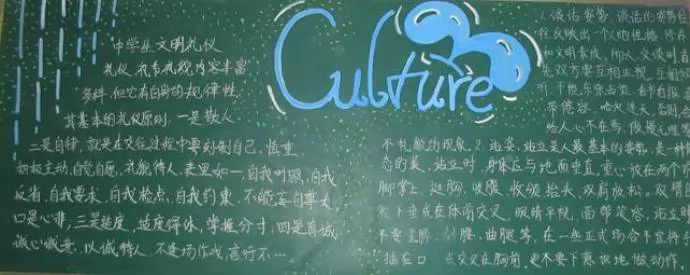 中学生文明礼仪
礼仪、礼节礼貌内容丰富
多样,但它有自身的规律性,
其基本的礼仪原则:一是敬人
二是自律,就是在交往过程中要克制自己,慎重
积极主动,自觉自愿,礼貌待人,表里如一,自我对照,自我
反省,自我要求,自我检点,自我约束,不能妄自尊大
口是心非,三是适度,适度得体,掌握分寸,四是真诚
诚心诚意,以诚待人,不逢场作戏,言行不…
Culture
1.谈话姿势,谈话的姿势往
往反映出一个人的性格、修养
和文明素质,所以,交谈时首
先双方要互相正视、互相倾
听、不能东张西望、看书看报、
带倦容、哈欠连天,否则会
给人心不在焉、傲慢无理等
不礼貌的现象。2.站姿,站立是人最基本的姿势,是一种静
态的美,站立时,身体应与地面垂直,重心放在两个前
脚掌上,挺胸、收腹、收颌、抬头、双肩放松、双臂自
然下垂或在体前交叉,眼睛平视,面带笑容,站立时
不要歪脖、斜腰、曲腿等,在一些正式场合不宜将手
插在口 或交叉在胸前,更不要下意识地做动作,